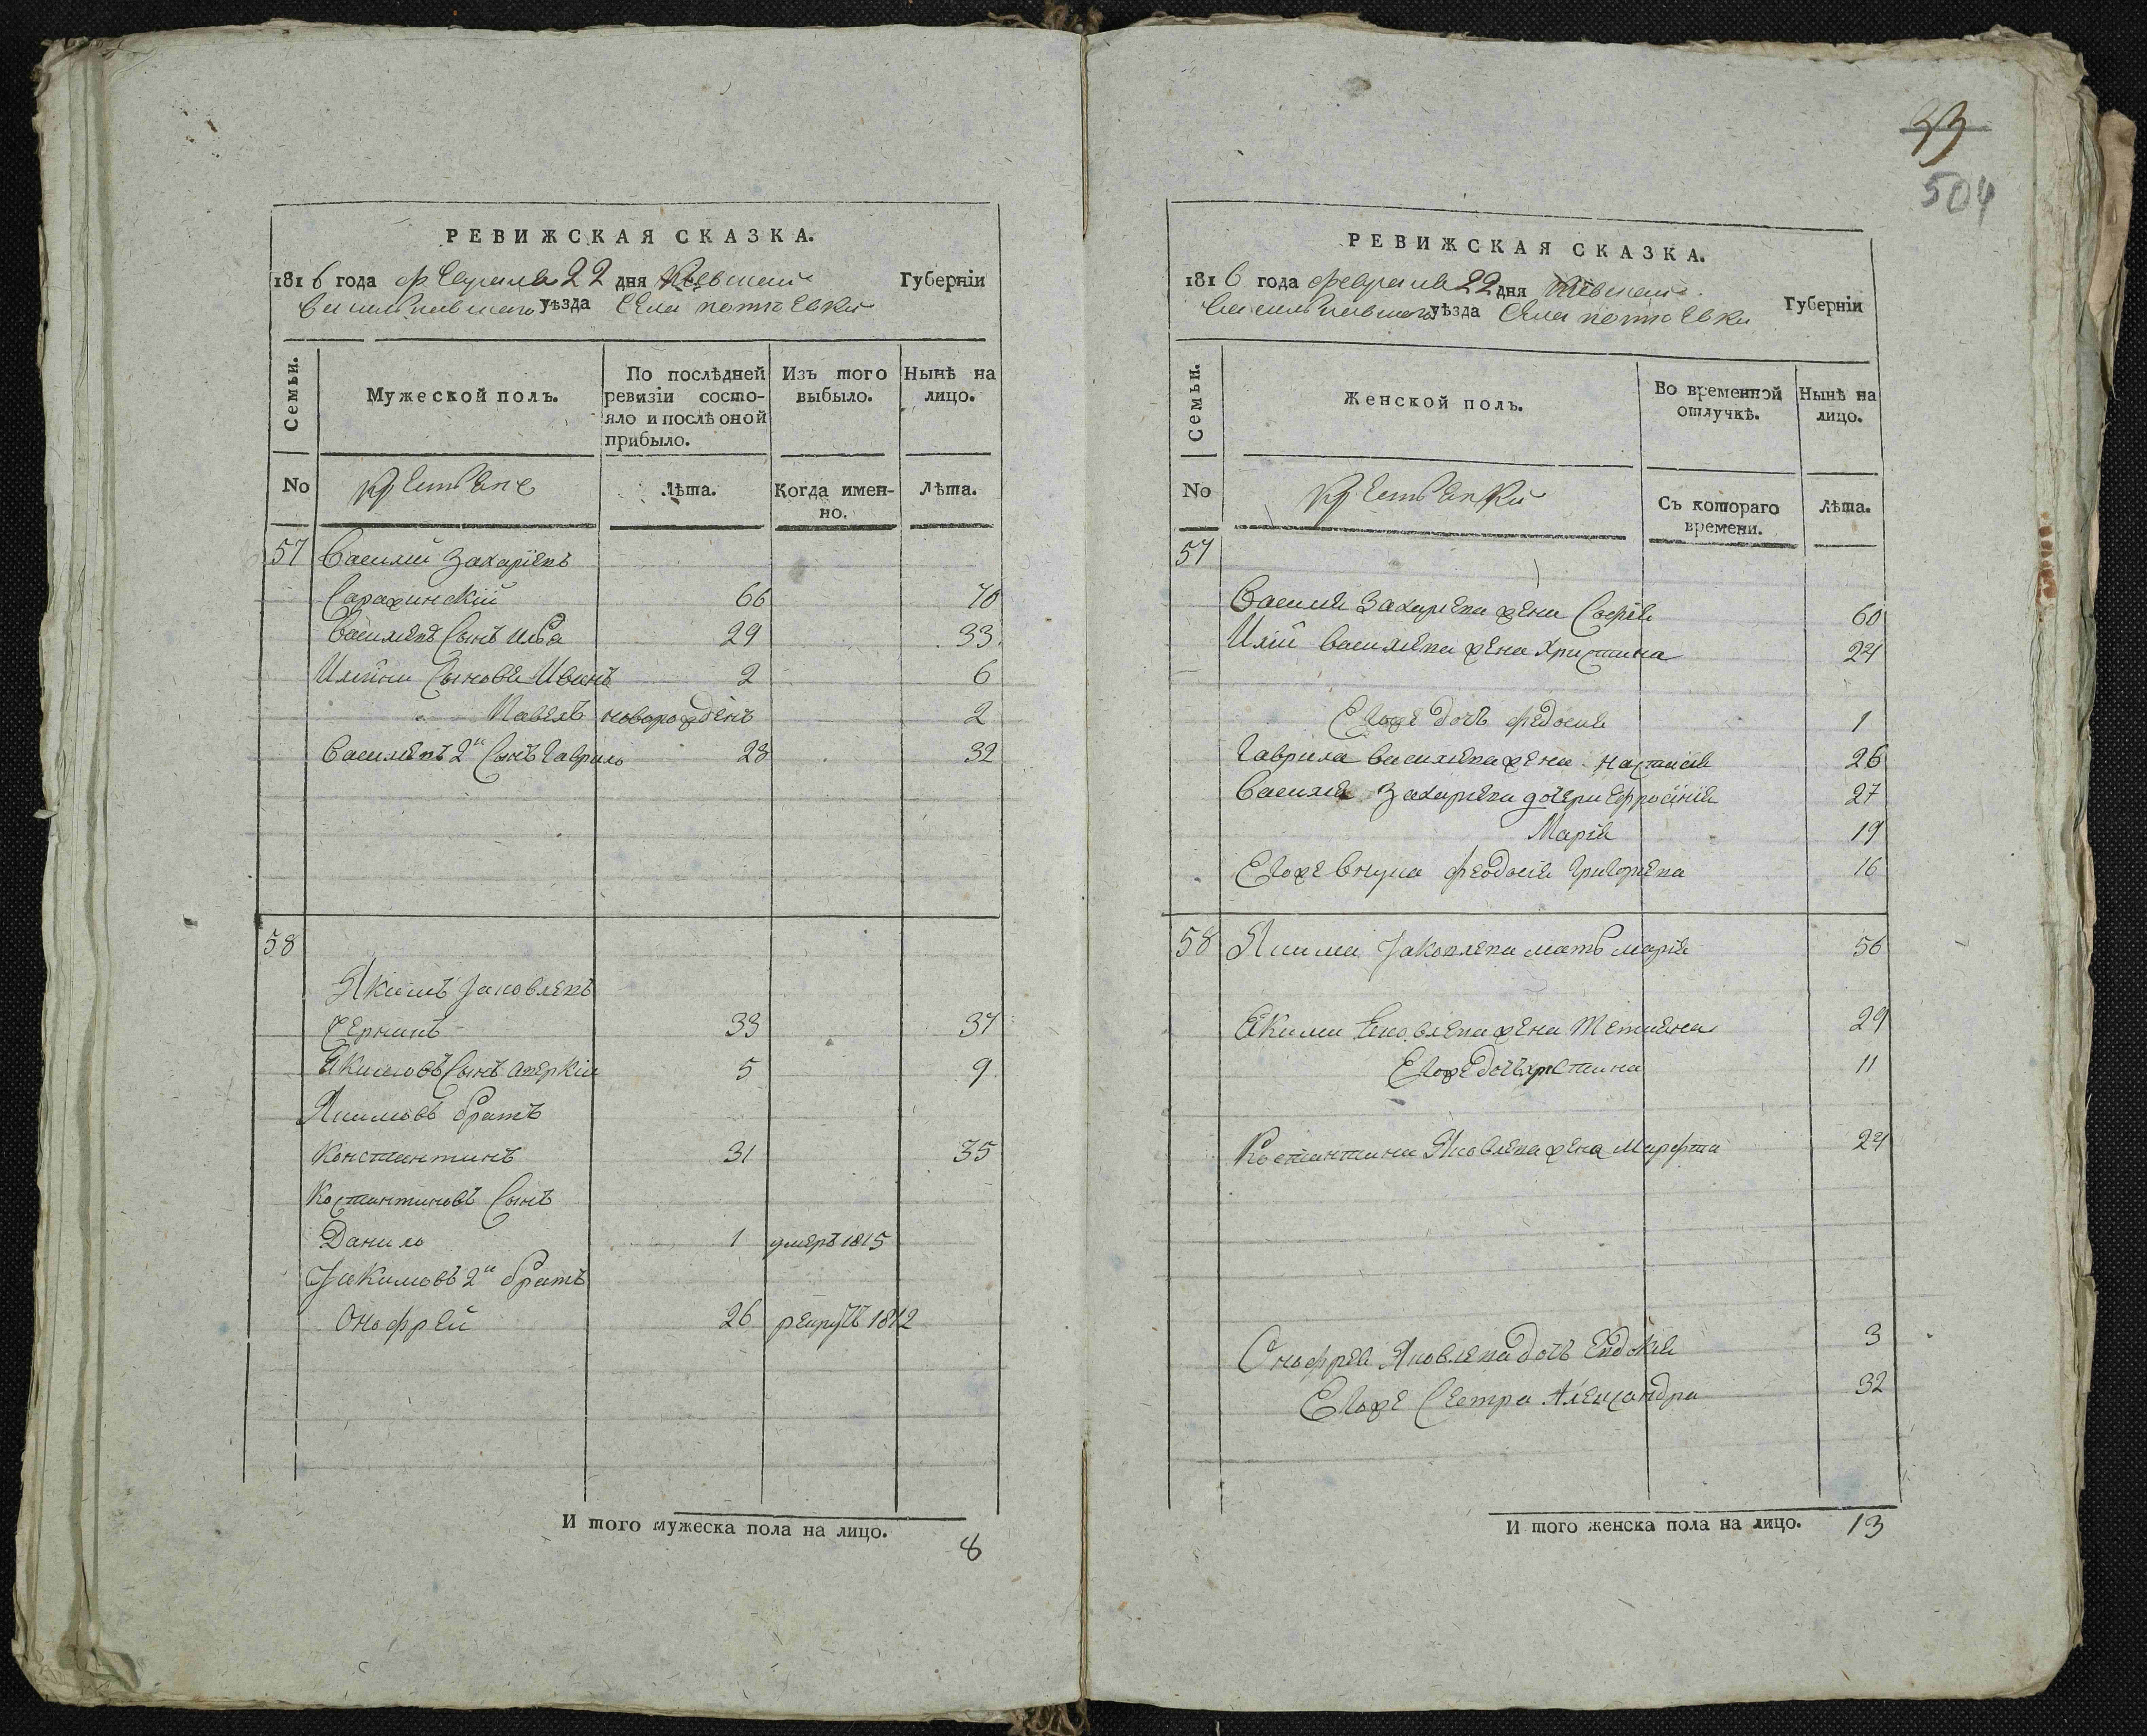 РЕВИЖСКАЯ СКАЗКА.
1816 года февраля 22 дня Кіевской Губерніи
Васильковскаго уѣзда Села
Семьи.
Мужеской полъ.
По послѣдней ревизіи состо-
яло и послѣ оной
прибыло.
Изъ того
выбыло.
Нынѣ на
лицо.
No
Крестьяне
Лѣта.
Когда имен-
но.
Лѣта.
57 Василий Захаріевъ
66 70
Василіевъ Сынъ Илья 29 33
Иліины Сыновья Иванъ 2 6
Павелъ новорожденъ 2
Василіевъ 2й Сынъ Гаврило 28 32
58
Якимъ Яковлевъ
33 37
Якимовъ Сынъ Аверкій 5 9
Якимовъ братъ
Константинъ 31 35
Костантиновъ Сынъ
Данило 1 умеръ 1815
Якимовъ 2й братъ
Онофрей 26 рекрутъ 1812
И того мужеска пола на лицо.
8
33
504
РЕВИЖСКАЯ СКАЗКА.
1816 года февраля 22 дня Кіевской Губерніи
Васильковскаго уѣзда Села
Семьи.
Женской полъ.
Во временной
отлучкѣ.
Нынѣ на
лицо.
No
Крестьянки
Съ котораго
времени.
Лѣта.
57
Василия Захариева жена Софія 60
Иліи Василиева жена Христина 24
Егоже дочь федосия 1
Гаврила Василиева жена Настасія 26
Василия Захариева дочери Ефросінія 27
Марія 19
Егоже внука феодосія Григориева 16
58 Якима Яковлева мать марія 56
Якима Яковлева жена Тетияна 29
Егоже дочь христина 11
Костантина Яковлева жена Марфта 24
Онофрея Яковлева дочь Евдокия 3
Егоже Сестра Александра 32
И того женска пола на лицо. 13